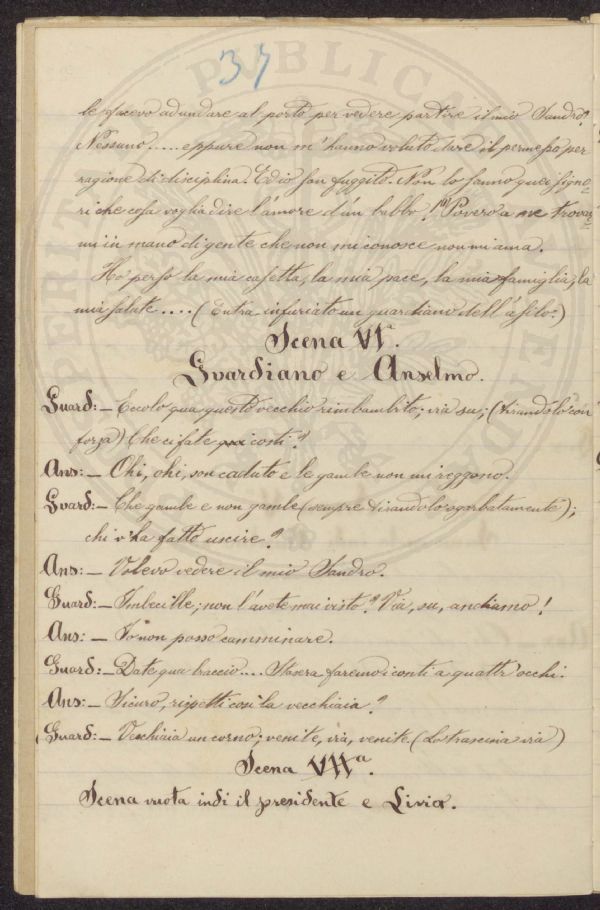 37
le facevo ad andare al porto per vedere partire il mio Sandro?
Nessuno..... eppure non m'hanno voluto dare il permesso per
ragione di disciplina. Ed io son fuggito. Non lo sanno quei signo-
ri che cosa voglia dire l'amore d'un babbo! Povero a me trovar-
mi in mano di gente che non mi conosce non mi ama.
Ho perso la mia casetta, la mia pace, la mia famiglia, la
mia salute.... (Entra infuriato un guardiano dell'asilo.)
Scena VIª.
Guardiano e Anselmo.
Guard:- Eccolo qua questo vecchio rimbambito; via su; (tirandolo con
forza) Che ci fate qui costì?
Ans:- Ohi, ohi, son caduto e le gambe non mi reggono.
Guard:- Che gambe e non gambe (sempre tirandolo sgarbatamente);
chi v'ha fatto uscire?
Ans:- Volevo vedere il mio Sandro.
Guard:- Imbecille; non l'avete mai visto? Via, su, andiamo!
Ans:- Io non posso camminare.
Guard:- Date qua braccio.... Stasera faremo i conti a quattr'occhi.
Ans:- Sicuro, rispetti così la vecchiaia?
Guard:- Vecchiaia un corno; venite, via, venite. (Lo trascina via)
Scena VIIª.
Scena vuota indi il presidente e Livia.